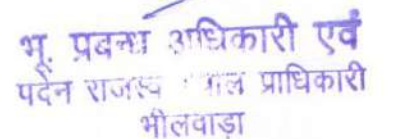 भू. प्रबन्ध अधिकारी एवं
पदेन राजस्व प्राधिकारी
भीलवाड़ा